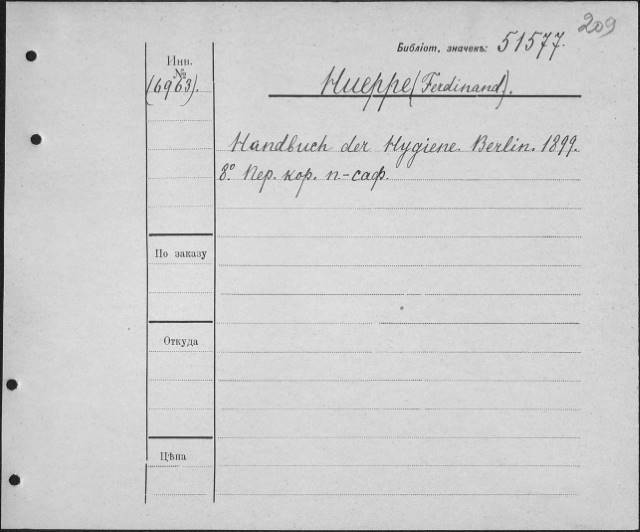 209
Библіот. значекъ: 51577.
Инв.
№
(6963).
Hueppe (Ferdinand).
Handbuch der Hygiene. Berlin. 1899.
8° Пер. кор. п-саф.
По заказу
Откуда
Цѣна